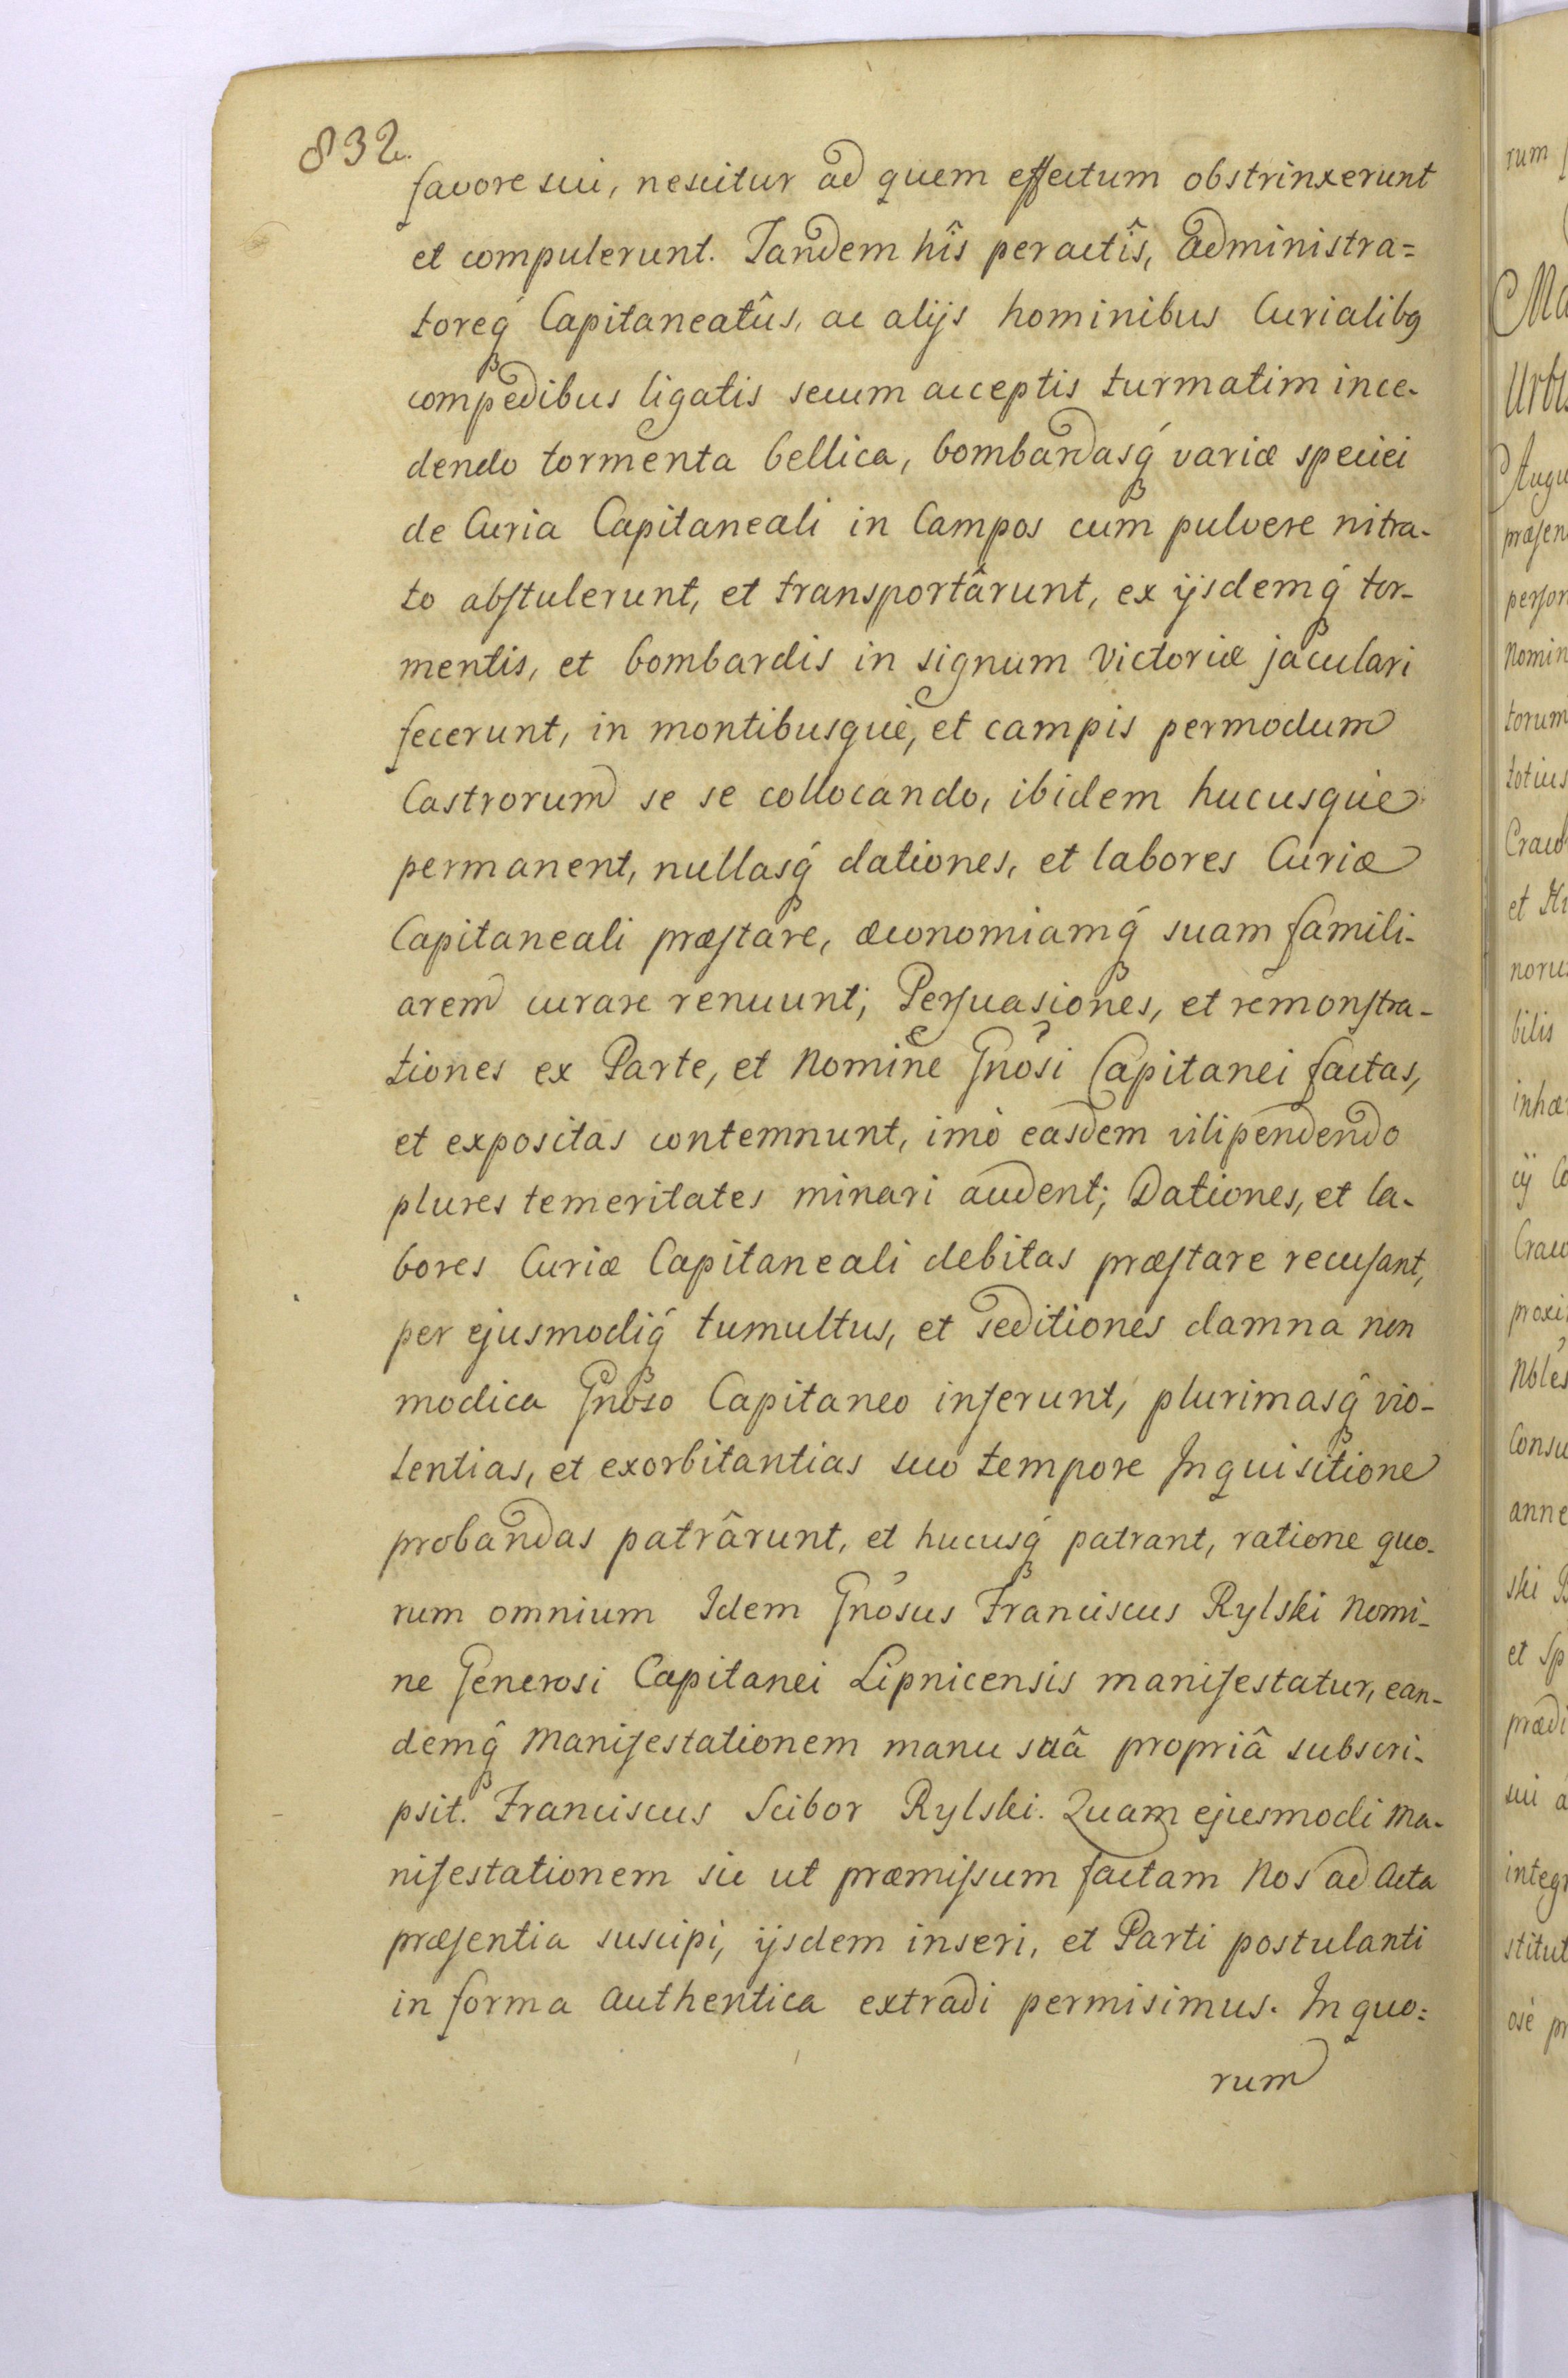 832.
favore sui, nescitur ad quem effectum obstrinxerunt
et compulerunt. Tandem hîs peractîs, administra=
toreq́ꝫ Capitaneatûs, ac alijs hominibus Curialibꝯ
compedibus ligatis secum acceptis turmatim ince-
dendo tormenta bellica, bombardasq́ꝫ variæ speciei
de Curia Capitaneali in Campos cum pulvere nitra-
to abſtulerunt, et transportârunt, ex ijsdemq́ꝫ tor-
mentis, et bombardis in signum Victoriæ jaculari
fecerunt, in montibusquè, et campis permodum
Castrorum se se collocando, ibidem hucusquè
permanent, nullasq́ꝫ dationes, et labores Curiæ
Capitaneali præſtare, œconomiamq́ꝫ suam famili-
arem curare renuunt; Perſuasiones, et remonſtra-
tiones ex Parte, et Nomine Gnosi Capitanei factas,
et expositas contemnunt, imò easdem vilipendendo
plures temeritates minari audent; Dationes, et la-
bores Curiæ Capitaneali debitas præſtare recuſant,
per ejusmodiq́ꝫ tumultus, et seditiones damna non
modica Gnoso Capitaneo inferunt, plurimasq́ꝫ vio-
lentias, et exorbitantias suo tempore Inquisitione
probandas patrârunt, et hucusq́ꝫ patrant, ratione quo-
rum omnium Idem Gnosus Franciscus Rylski Nomi-
ne Generosi Capitanei Lipnicensis manifestatur, ean-
demq́ꝫ Manifestationem manu suâ propriâ subscri-
psit. Franciscus Scibor Rylski. Quam ejusmodi Ma-
nifestationem sic ut præmiſsum factam Nos ad Acta
præſentia suscipi, ijsdem inseri, et Parti postulanti
in forma authentica extradi permisimus. In quo=
rum